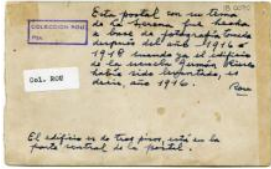 Esta postal con un tema
COLECCION ROU
de La Serena fue hecha
a base de fotografía tomada
después del año 1916 ó
1918 cuando ya el edificio
de la escuela Germán Riesco
había sido levantado, es
decir, año 1916.
Rou
Col. ROU
El edificio es de tres pisos, está en la
parte central de la postal.